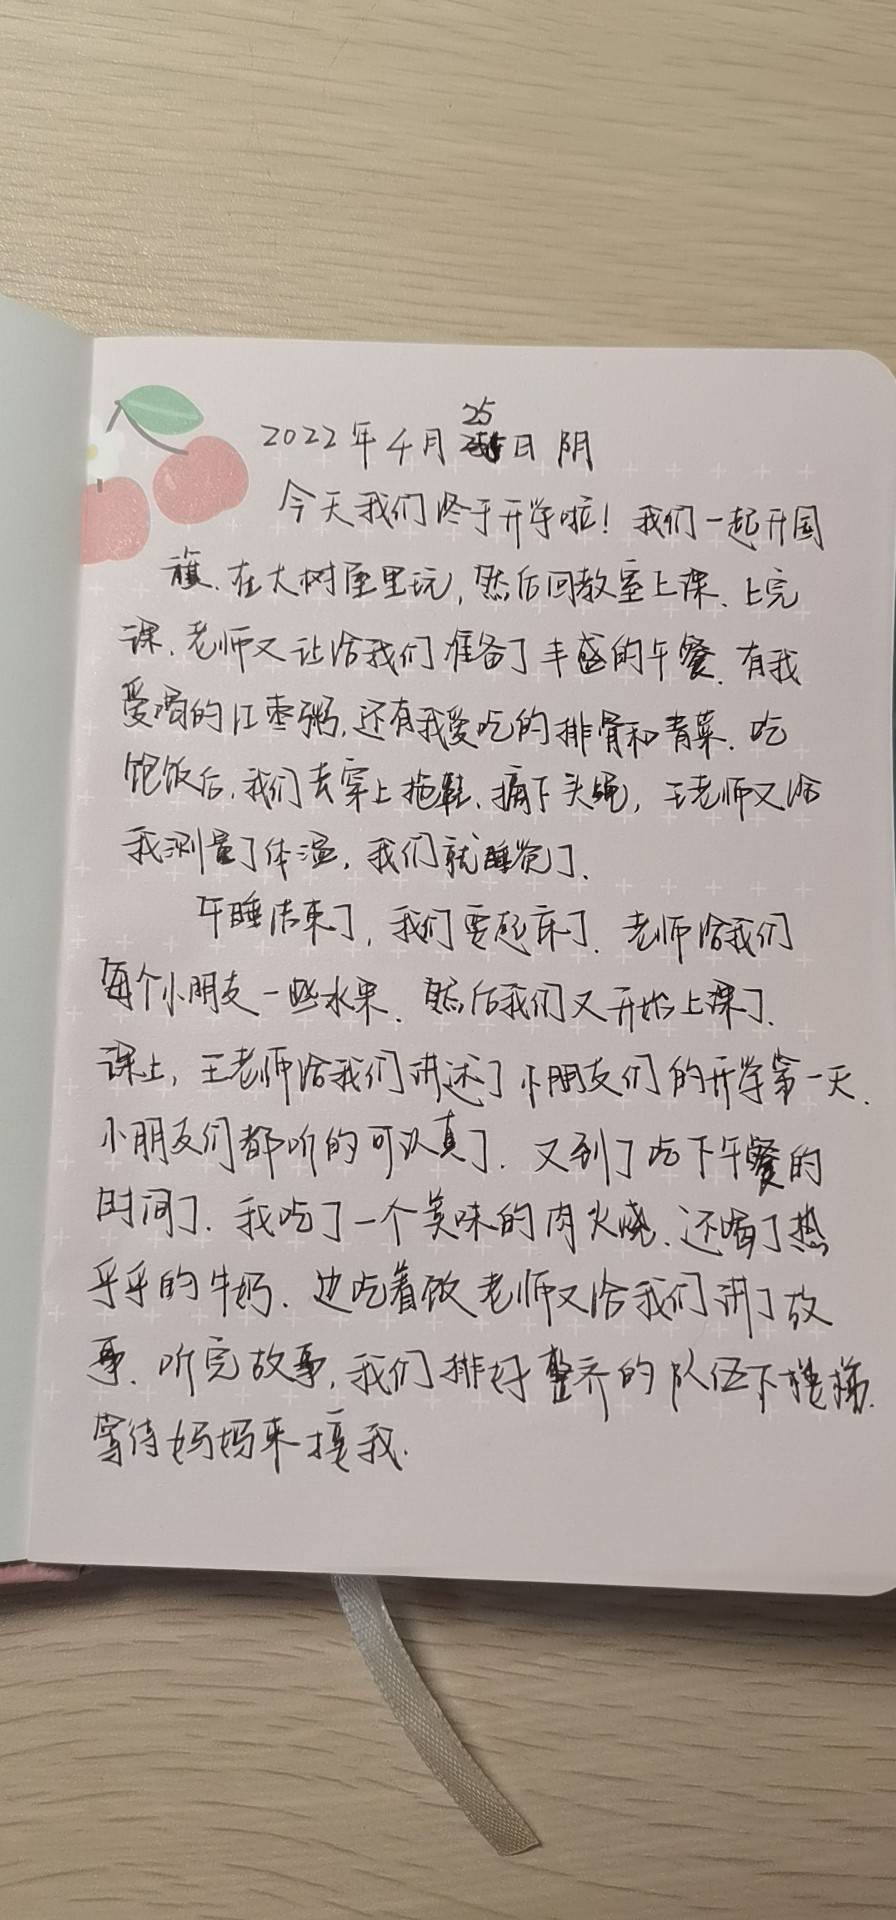 2022年4月25日 阴
今天我们终于开学啦！我们一起升国
旗、在大树屋里玩，然后回教室上课、上完
课、老师又让给我们准备了丰盛的午餐、有我
爱喝的红枣粥，还有我爱吃的排骨和青菜、吃
饱饭后、我们去穿上拖鞋、摘下头绳，王老师又给
我测量了体温，我们就睡觉了、
午睡结束了，我们要起床了、老师给我们
每个小朋友一些水果、然后我们又开始上课了、
课上，王老师给我们讲述了小朋友们的开学第一天、
小朋友们都听的可认真了、又到了吃下午餐的
时间了、我吃了一个美味的肉火烧、还喝了热
乎乎的牛奶、边吃着饭老师又给我们讲了故
事、听完故事，我们排好整齐的队伍下楼梯、
等待妈妈来接我.